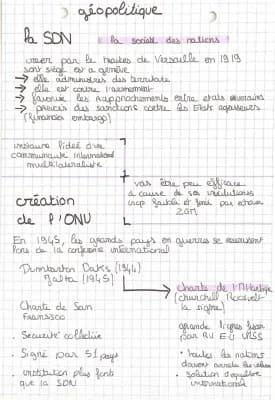 géopolitique
la SDN
la société des nations
créer par le traités de Versaille en 1919
sont siège est a genève
→ elle administres des territoire
→ elle est contre l'armement
→ favorise les rapprochements entre etats
→ prévois des sanctions contre les Etats agresseurs
(financiés embargo)
instaure l'idée d'une
communauté international
multilatéraliste
+
vas être peu efficace
à cause de ses institutions
trop faible et finis par echoué
création
de l'ONU
En 1945, les grands pays en guerres se réunissent
lors de la conférence international
Dumbarton Oaks (1944)
Yalta (1945)
→ charte de l'Atlantique
(churchill Roosevelt
la signe)
Charte de San
Francisco
grande lignes fixer
par RU EU URSS
• Sécurité collective
• Signé par 51 pays
• institution plus forte
que la SDN
• toutes les nations
• solution d'équilibre
international